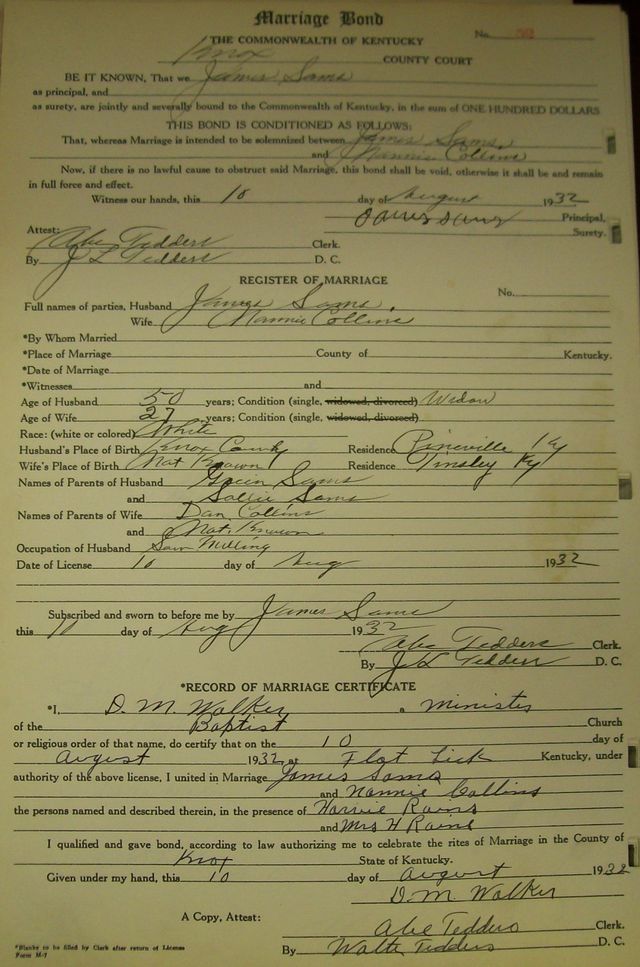 Marriage Bond
No.
THE COMMONWEALTH OF KENTUCKY
Knox COUNTY COURT
BE IT KNOWN, That we James Sams
as principal, and
as surety, are jointly and severally bound to the Commonwealth of Kentucky, in the sum of ONE HUNDRED DOLLARS
THIS BOND IS CONDITIONED AS FOLLOWS:
That, whereas Marriage is intended to be solemnized between James Sams
and Nannie Collins
Now, if there is no lawful cause to obstruct said Marriage, this bond shall be void, otherwise it shall be and remain
in full force and effect.
Witness our hands, this 10 day of August 1932
James Sams Principal,
Surety.
Attest:
Abe Tedders Clerk.
By J L Tedders D. C.
REGISTER OF MARRIAGE
No.
Full names of parties, Husband James Sams
Wife Nannie Collins
*By Whom Married
*Place of Marriage County of Kentucky.
*Date of Marriage
*Witnesses and
Age of Husband 50 years; Condition (single, widowed, divorced) Widow
Age of Wife 27 years; Condition (single, widowed, divorced)
Race: (white or colored) White
Husband's Place of Birth Knox County Residence Pineville Ky
Wife's Place of Birth Not Known Residence Tinsley Ky
Names of Parents of Husband Green Sams
and Sallie Sams
Names of Parents of Wife Dan Collins
and Not Known
Occupation of Husband Saw Milling
Date of License 10 day of Aug 1932
Subscribed and sworn to before me by James Sams
this 10 day of Aug 1932
Abe Tedders Clerk.
By J L Tedders D. C.
*RECORD OF MARRIAGE CERTIFICATE
*I, D. M. Walker a minister
of the Baptist Church
or religious order of that name, do certify that on the 10 day of
August 1932, at Flat Lick Kentucky, under
authority of the above license, I united in Marriage James Sams
and Nannie Collins
the persons named and described therein, in the presence of Harvie Rains
and Mrs H Rains
I qualified and gave bond, according to law authorizing me to celebrate the rites of Marriage in the County of
Knox State of Kentucky.
Given under my hand, this 10 day of August 1932
D. M. Walker
A Copy, Attest:
Abe Tedders Clerk.
By Walter Tedders D. C.
*Blanks to be filled by Clerk after return of License
Form M-7